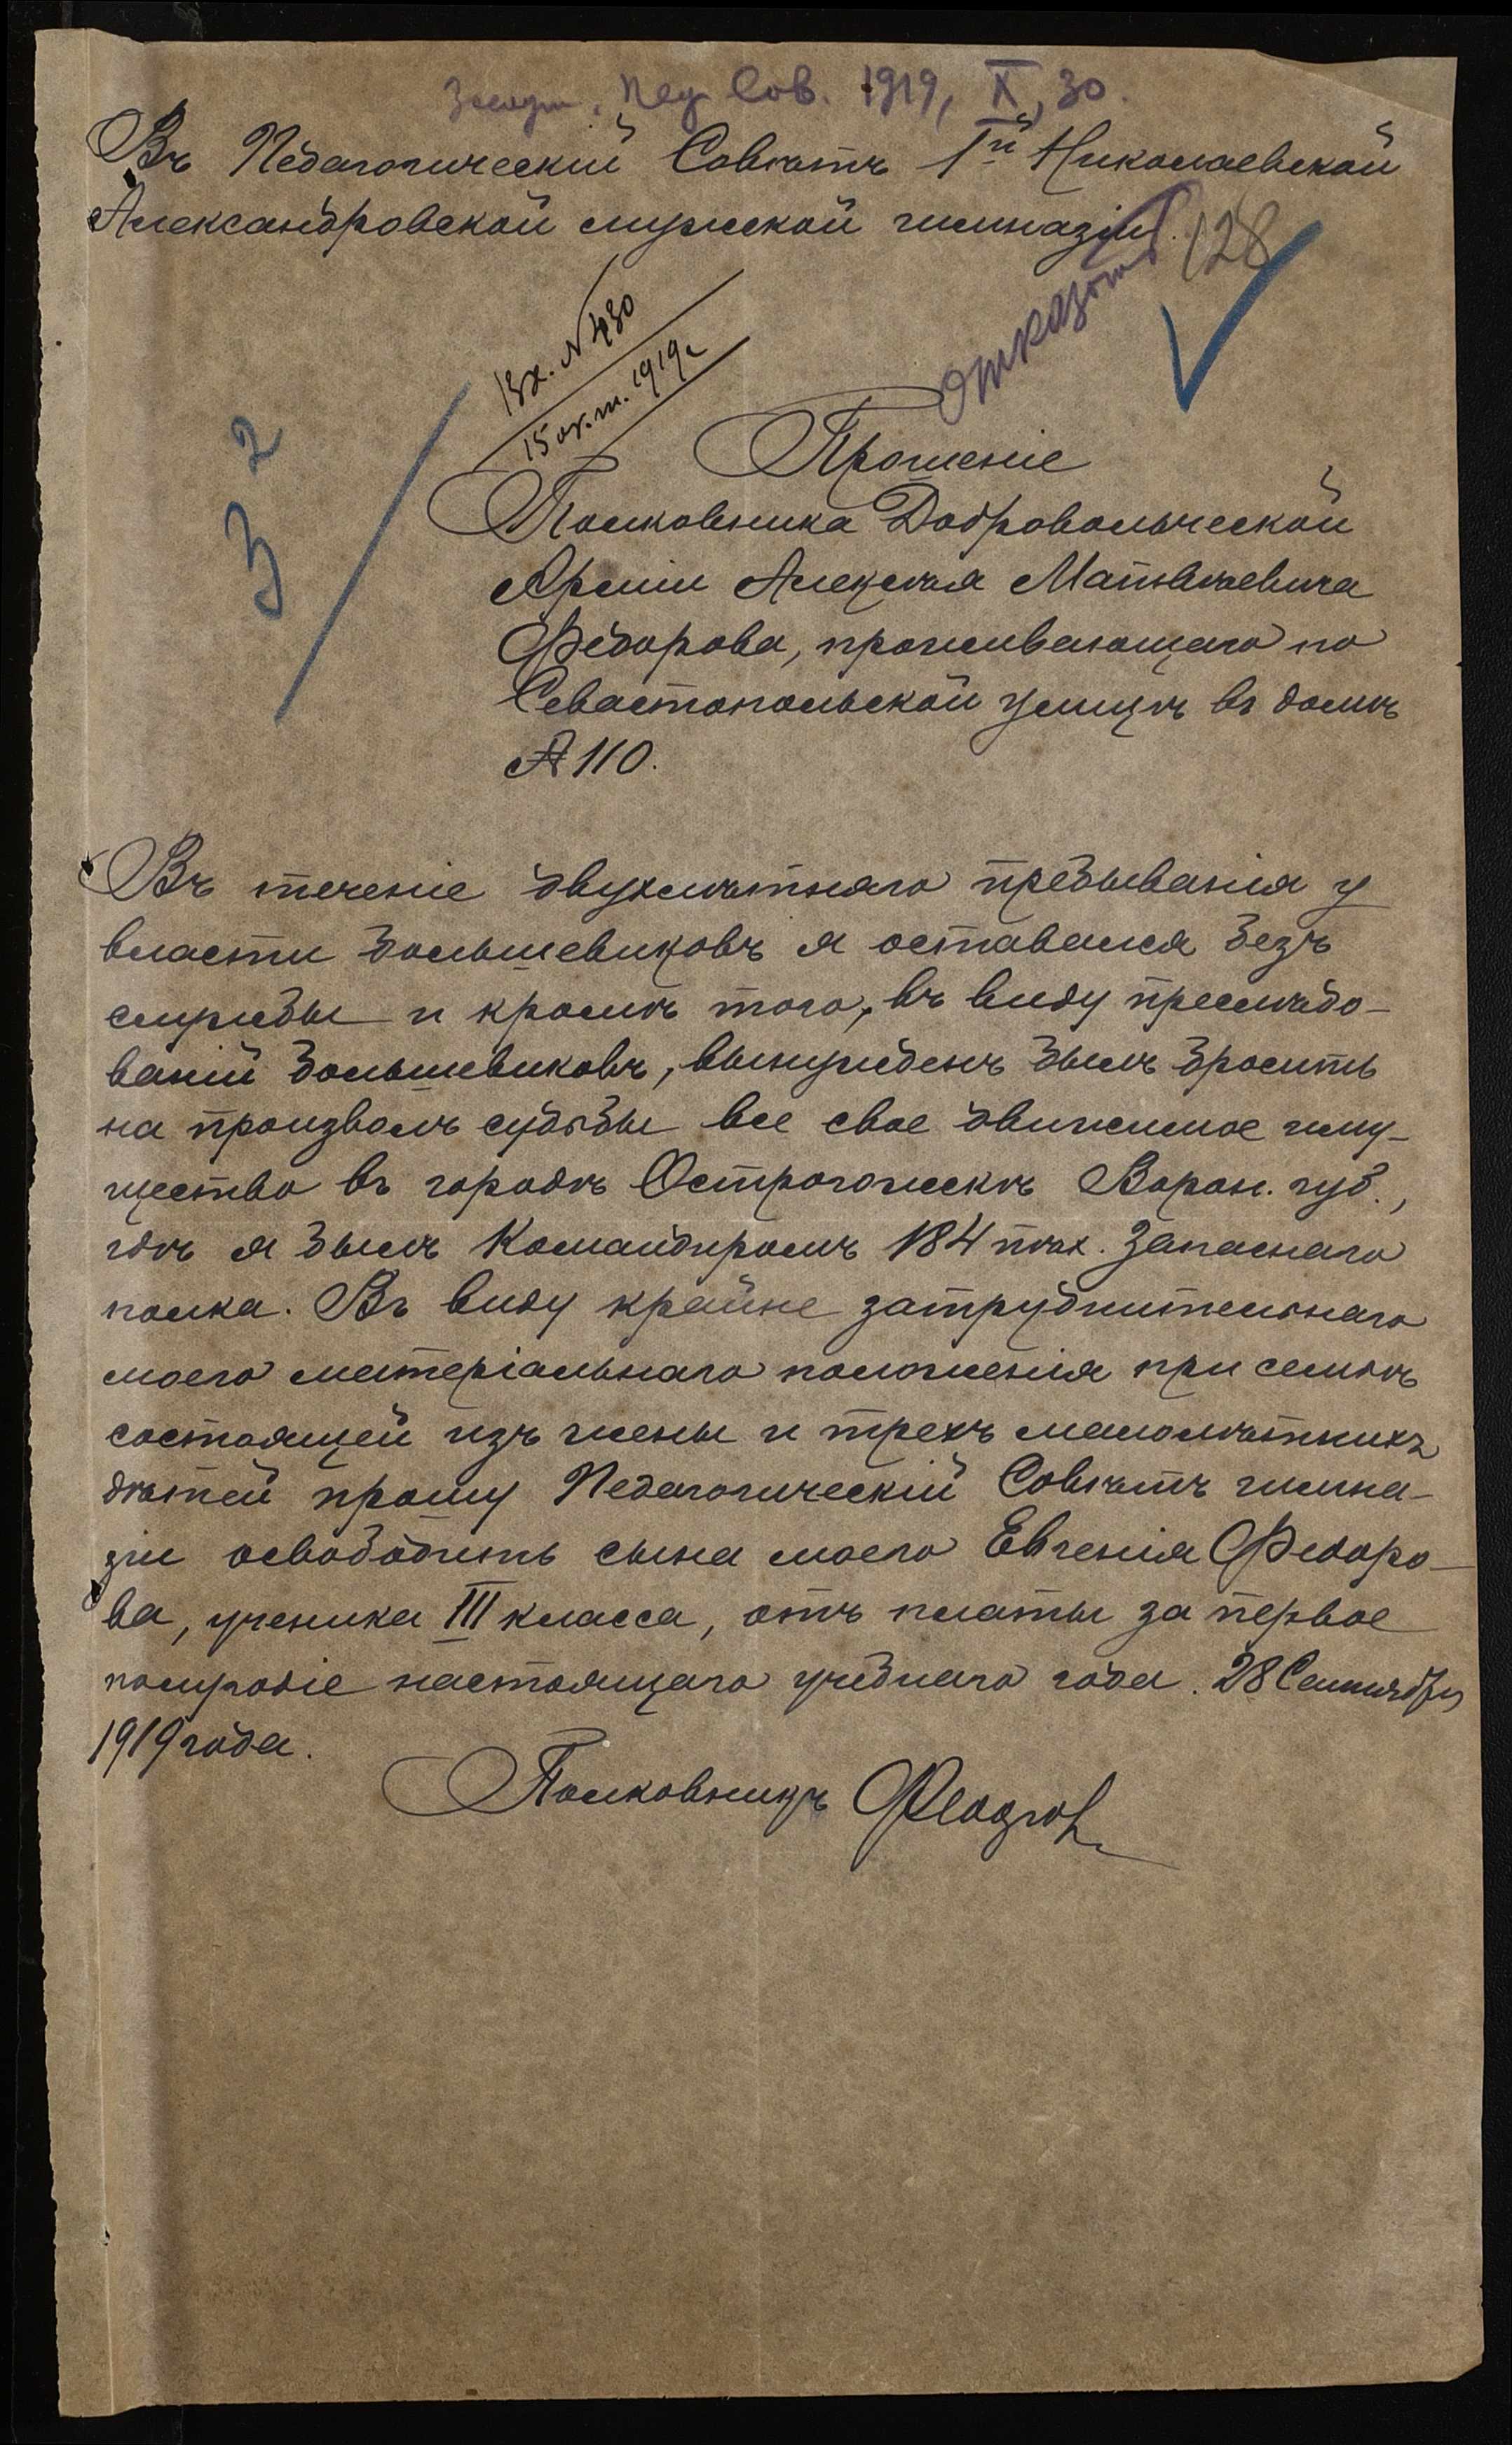 Засѣд. Пед. Сов. 1919, X, 30.
Въ Педагогическій Совѣтъ 1й Николаевской
Александровской мужской гимназіи.
128
Отказать
Вх. N 430
15 окт. 1919 г.
3 2
Прошеніе
Полковника Добровольческой
Арміи Алексѣя Матвѣевича
Федорова, проживающаго по
Севастопольской улицѣ въ домѣ
№ 110.
Въ теченіе двухлѣтняго пребыванія у
власти большевиковъ я оставался безъ
службы и кромѣ того, въ виду преслѣдо-
ваній большевиковъ, вынужденъ былъ бросить
на произволъ судьбы все свое движимое иму-
щество въ городѣ Острогожскѣ Ворон. губ.,
гдѣ я былъ Командиромъ 184 пѣх. запаснаго
полка. Въ виду крайне затруднительнаго
моего матеріальнаго положенія при семьѣ
состоящей изъ жены и трехъ малолѣтнихъ
дѣтей прошу Педагогическій Совѣтъ гимна-
зіи освободить сына моего Евгенія Федоро-
ва, ученика III класса, отъ платы за первое
полугодіе настоящаго учебнаго года. 28 Сентября
1919 года.
Полковникъ Федоров